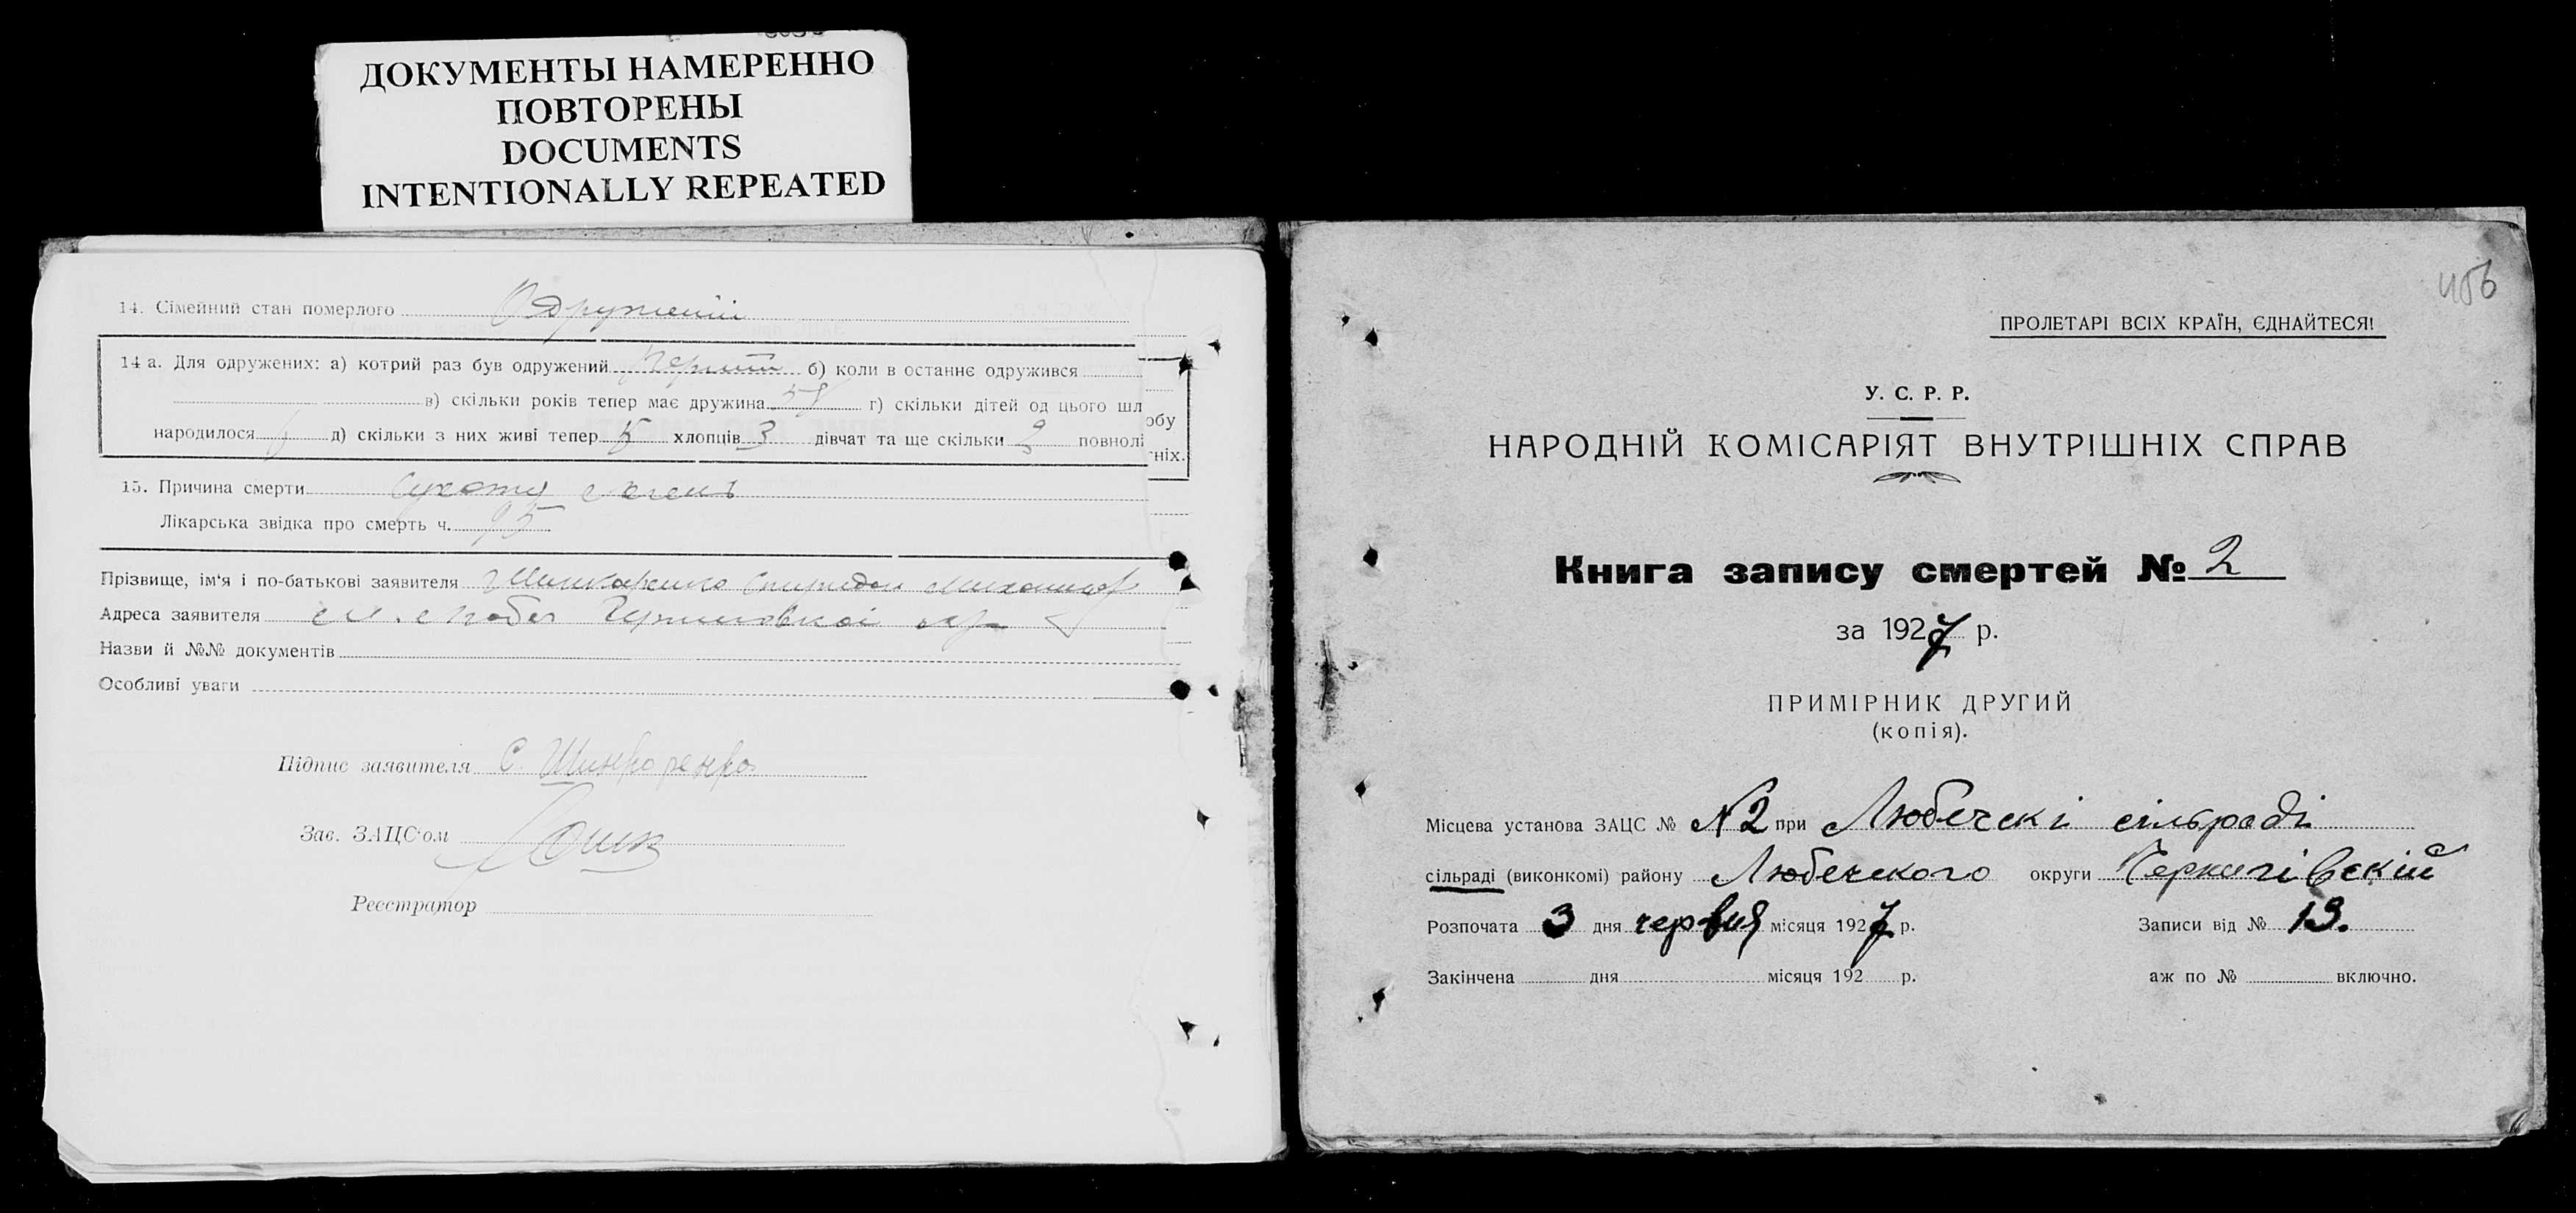 ДОКУМЕНТЫ НАМЕРЕННО
ПОВТОРЕНЫ
DOCUMENTS
INTENTIONALLY REPEATED
14. Сімейний стан померлого Одружений
14 а. Для одружених: а) котрий раз був одружений б) коли в останнє одружився
в) скільки років тепер має дружина г) скільки дітей од цього шлюбу
народилося д) скільки з них живі тепер 5 хлопців 3 дівчат та ще скільки 2 повнолітніх.
15. Причина смерти Сухоты
Лікарська звідка про смерть ч. 95
Прізвище, ім'я і по-батькові заявителя Шинкаренко Спиридон
Адреса заявителя
Назви й №№ документів
Особливі уваги
Підпис заявителя С. Шинкаренко
Зав. ЗАЦС'ом
Реєстратор
456
ПРОЛЕТАРІ ВСІХ КРАЇН, ЄДНАЙТЕСЯ!
У. С. Р. Р.
НАРОДНІЙ КОМІСАРІЯТ ВНУТРІШНІХ СПРАВ
Книга запису смертей № 2
за 1927 р.
ПРИМІРНИК ДРУГИЙ
(копія).
Місцева установа ЗАЦС № N2 при Любечскі сільраді
сільраді (виконкомі) району Любечского округи Чернигівский
Розпочата 3 дня червня місяця 1927 р. Записи від № 19.
Закінчена дня місяця 192 р. аж по № включно.